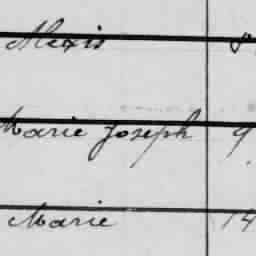 Alexis 8
Marie Joseph 9
Marie 14